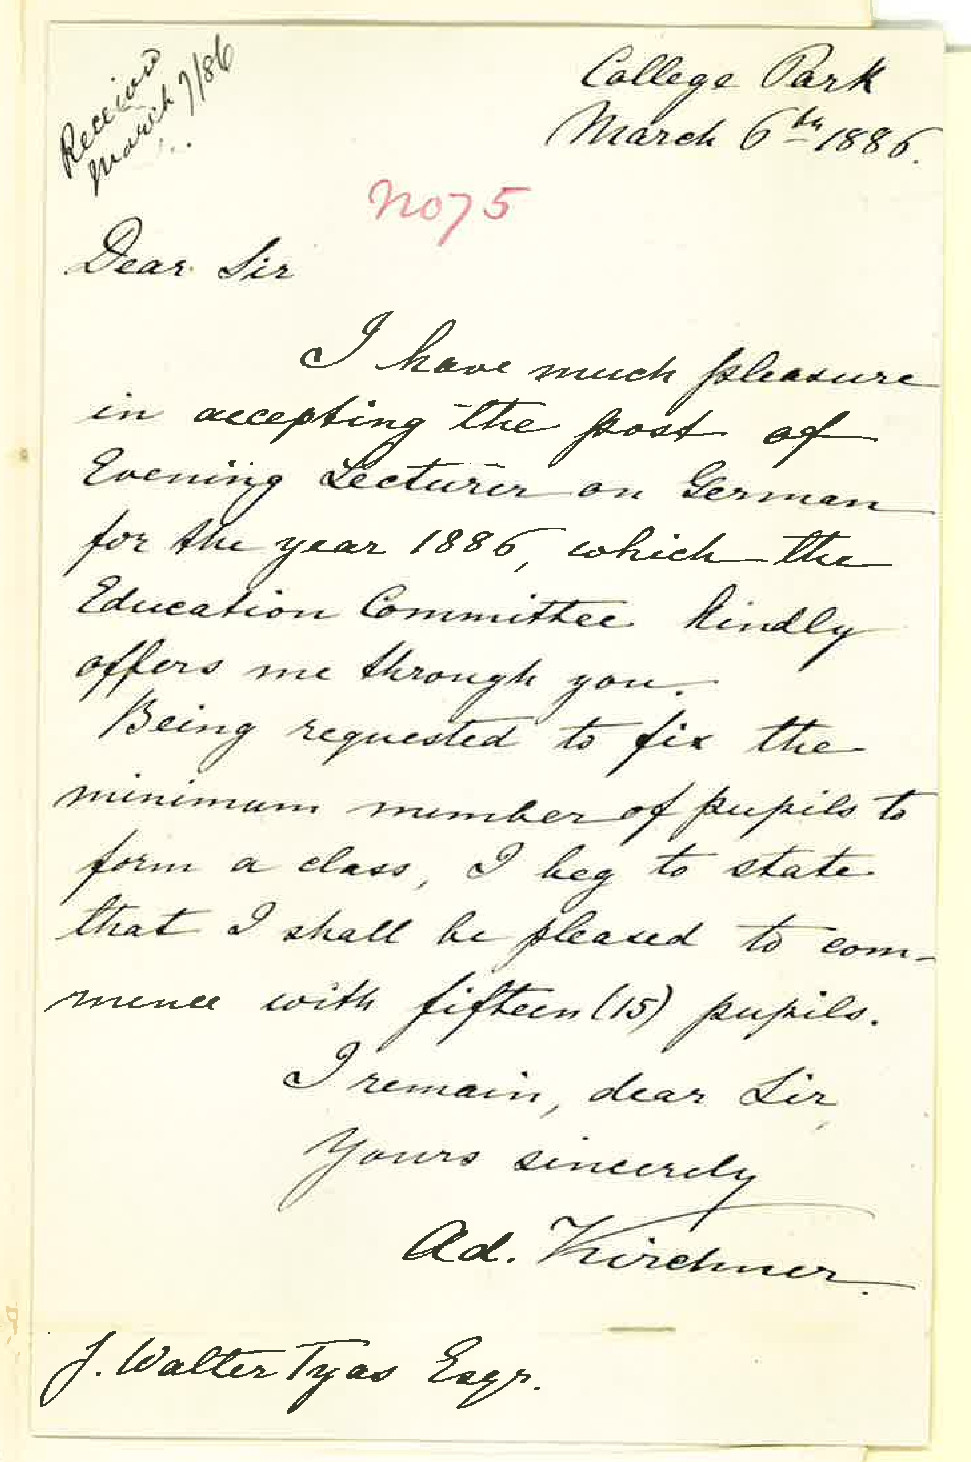 Received
March 7/86
College Park
March 6th 1886.
No 75
Dear Sir
I have much pleasure
in accepting the post of
Evening Lecturer on German
for the year 1886, which the
Education Committee kindly
offers me through you.
Being requested to fix the
minimum number of pupils to
form a class, I beg to state
that I shall be pleased to com-
mence with fifteen (15) pupils.
I remain, dear Sir,
Yours sincerely
Ad. Kirchner.
J. Walter Tyas Esqr.